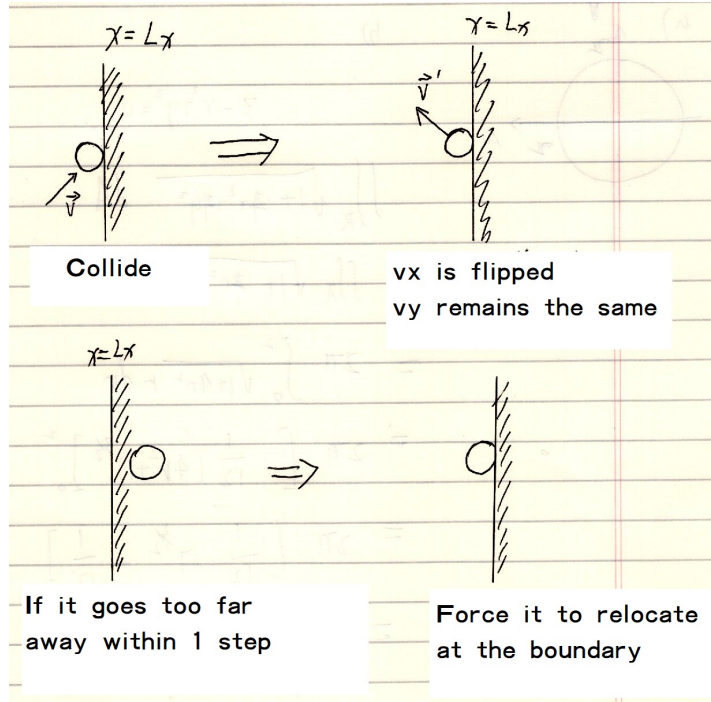 x = Lx
x = Lx
v⃗
v⃗'
Collide
vx is flipped
vy remains the same
x = Lx
If it goes too far
away within 1 step
Force it to relocate
at the boundary